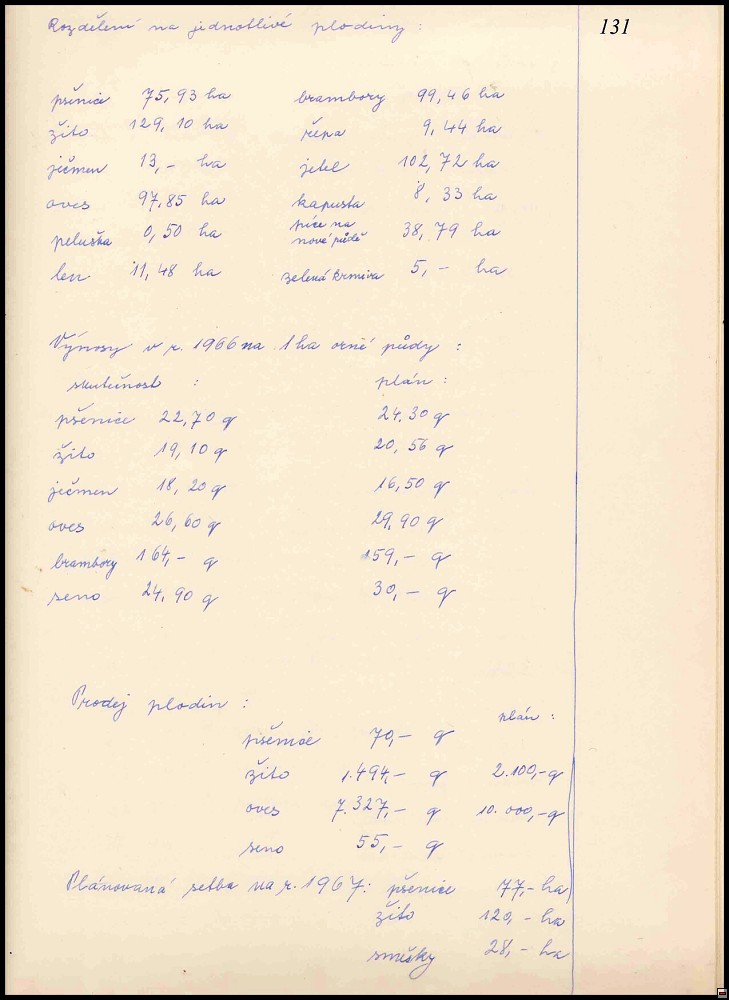 Rozdělení na jednotlivé plodiny : 131
pšenice 75,93 ha brambory 99,46 ha
žito 129,10 ha řepa 9,44 ha
ječmen 13,- ha jetel 102,72 ha
oves 97,85 ha kapusta 8,33 ha
peluška 0,50 ha píce na nové půdě 38,79 ha
len 11,48 ha zelená krmiva 5,- ha
Výnosy v r. 1966 na 1 ha orné půdy :
skutečnost : plán :
pšenice 22,70 q 24,30 q
žito 19,10 q 20,56 q
ječmen 18,20 q 16,50 q
oves 26,60 q 29,90 q
brambory 164,- q 159,- q
seno 24,90 q 30,- q
Prodej plodin : plán :
pšenice 70,- q
žito 1.494,- q 2.100,- q
oves 7.327,- q 10.000,- q
seno 55,- q
Plánovaná setba na r. 1967: pšenice 77,- ha
žito 120,- ha
směsky 28,- ha